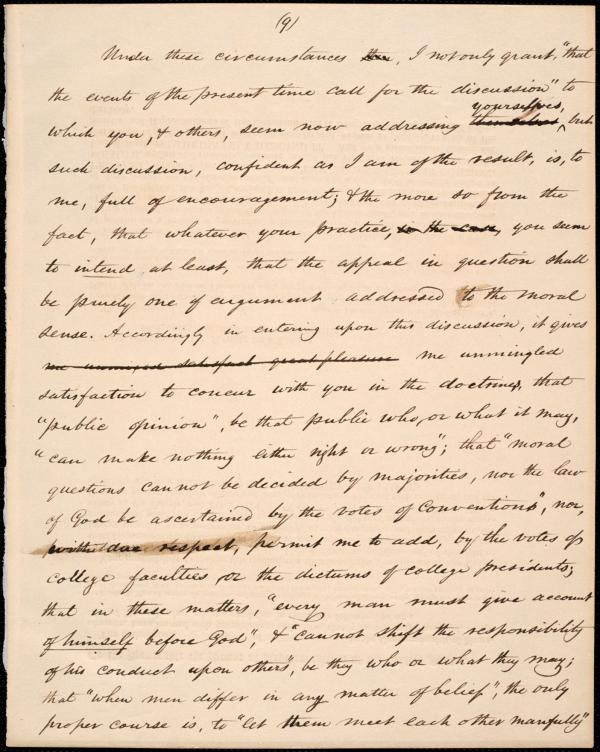 (9)
Under these circumstances, I not only grant, "that
the events of the present time call for the discussion" to
yourselves,
which you, & others, seem now addressing themselves, but
such discussion, confident as I am of the result, is, to
me, full of encouragement; & the more so from the
fact, that whatever your practice, in the case, you seem
to intend at least, that the appeal in question shall
be purely one of argument addressed to the moral
sense. Accordingly in entering upon this discussion, it gives
me unmixed satisfact great pleasure me unmingled
satisfaction to concur with you in the doctrines, that
"public opinion", be that public who, or what it may,
"can make nothing either right or wrong"; that "moral
questions cannot be decided by majorities, nor the law
of God be ascertained by the votes of Conventions", nor,
with due respect, permit me to add, by the votes of
college faculties, or the dictums of college presidents;
that in these matters, "every man must give account
of himself before God", & "cannot shift the responsibility
of his conduct upon others", be they who or what they may;
that "when men differ in any matter of belief", the only
proper course is, to "let them meet each other manfully"